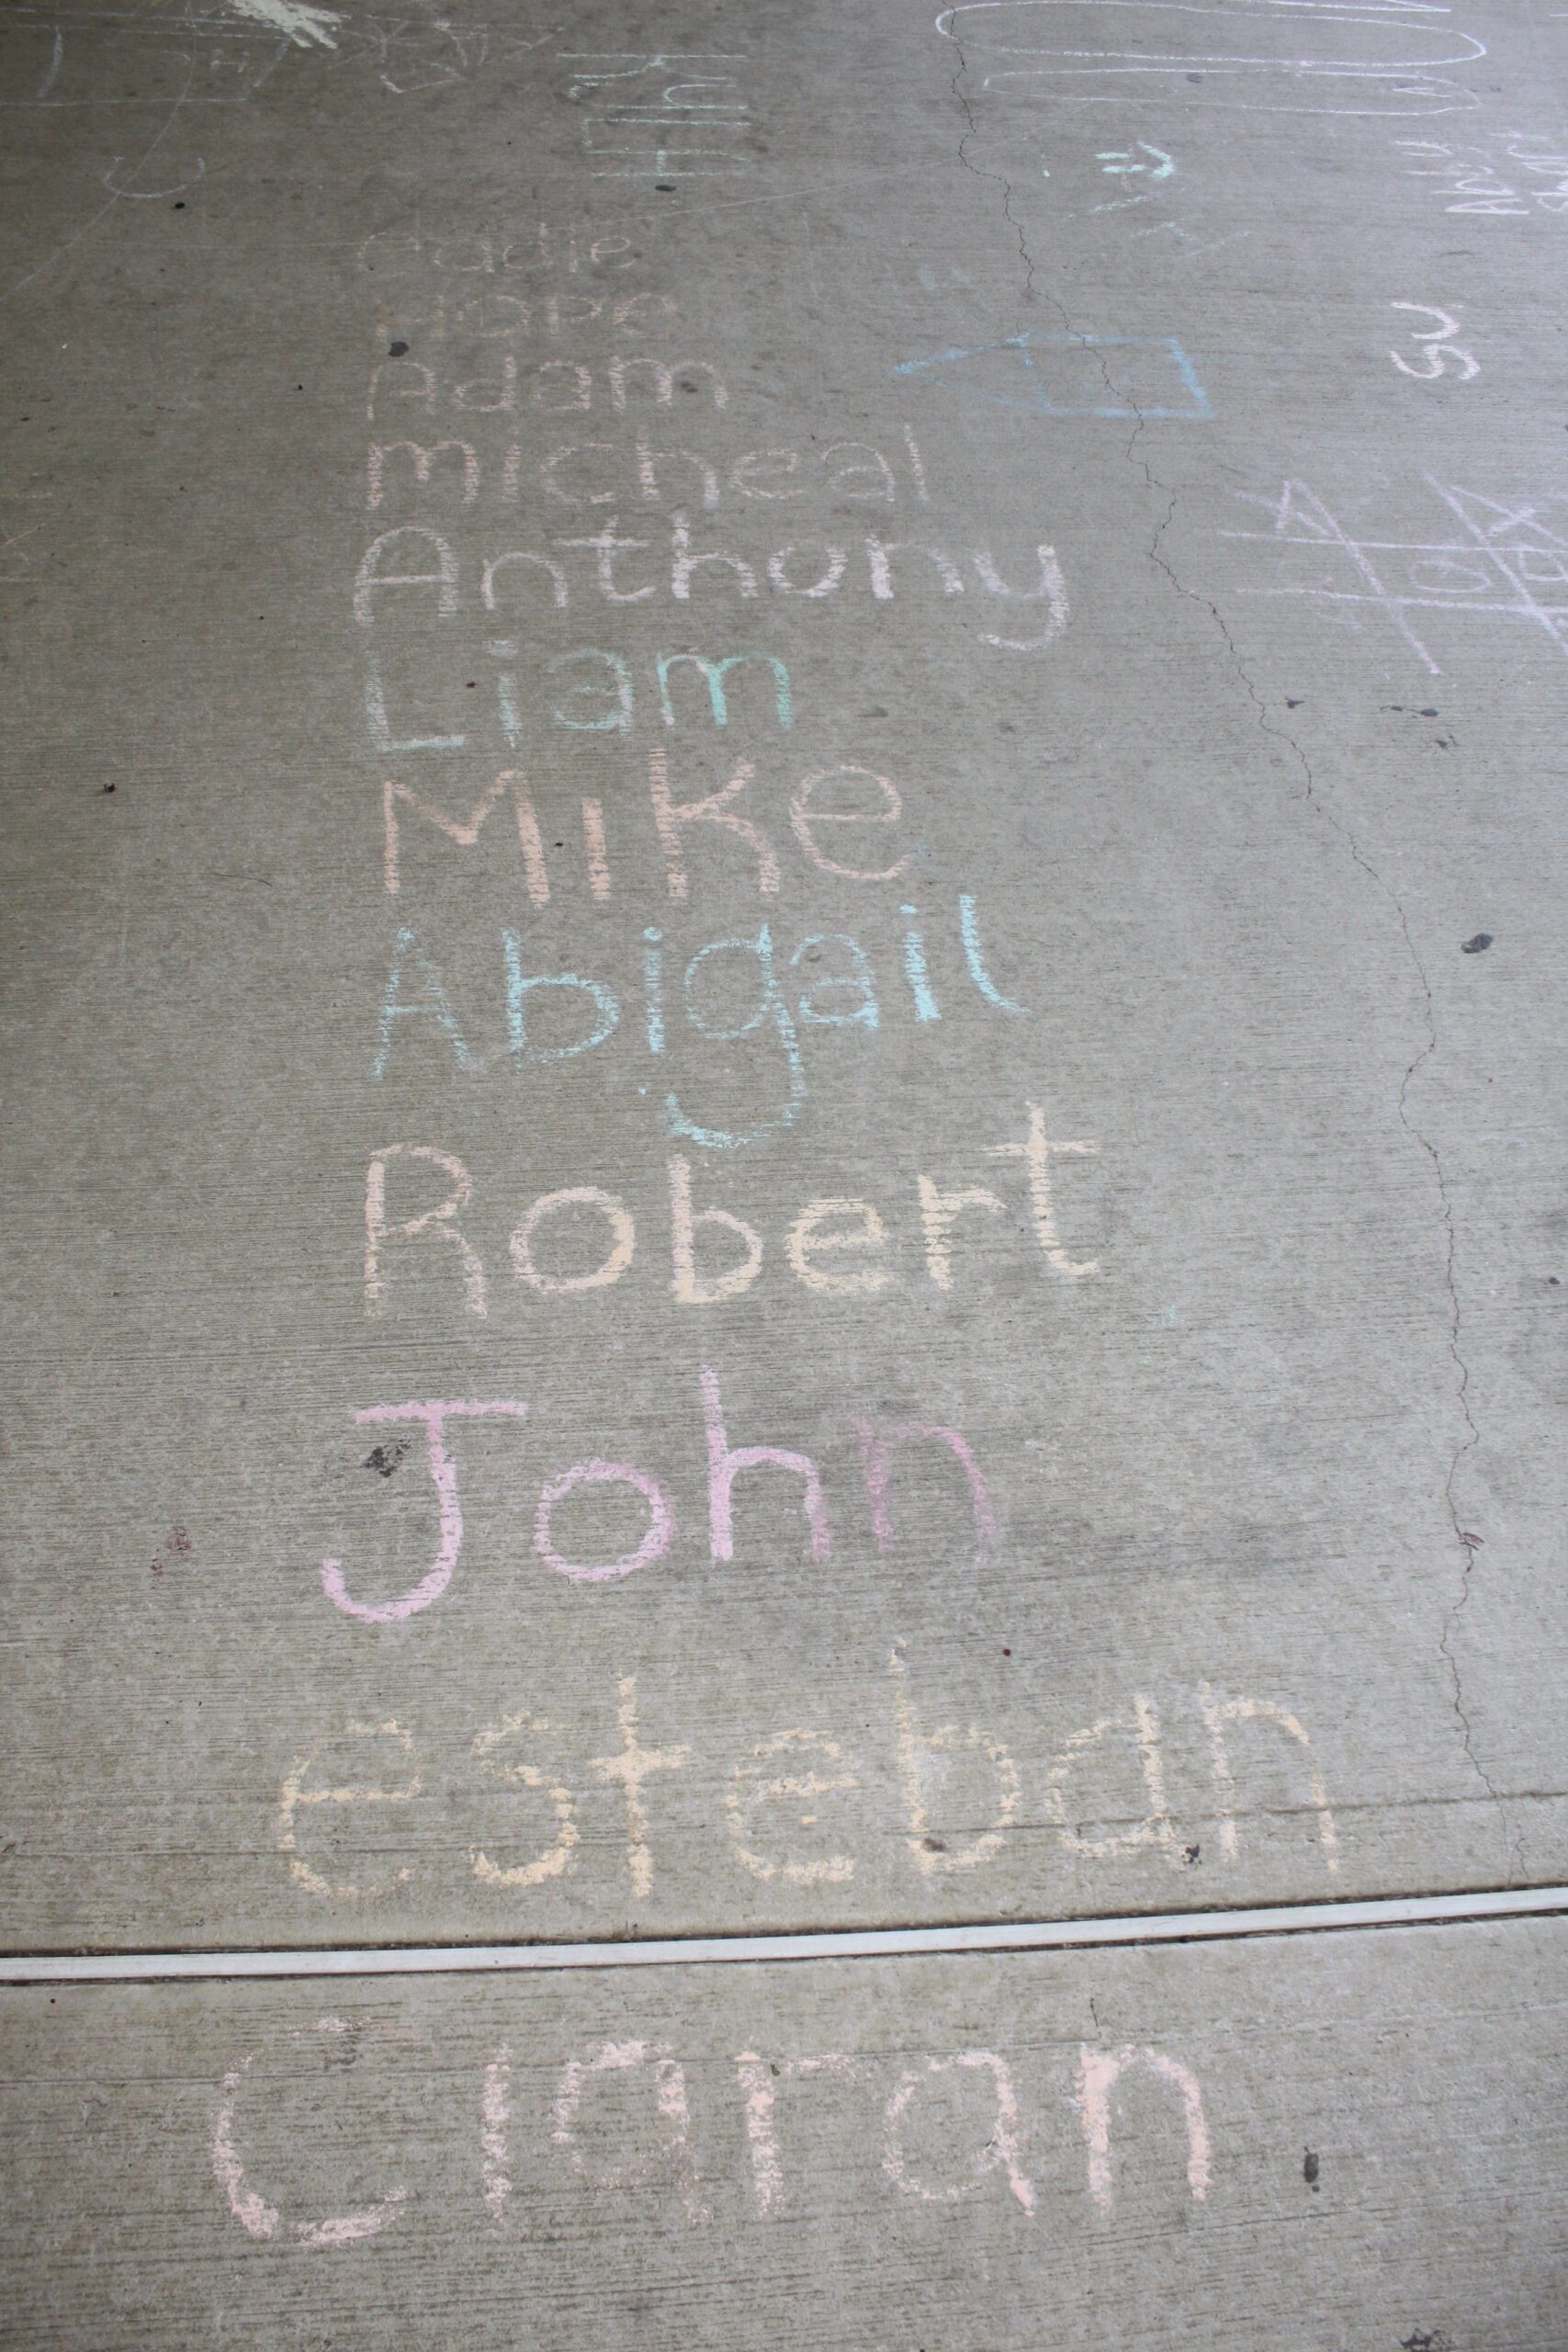 Hope
Adam
micheal
Anthony
Liam
Mike
Abigail
Robert
John
esteban
Ciaran